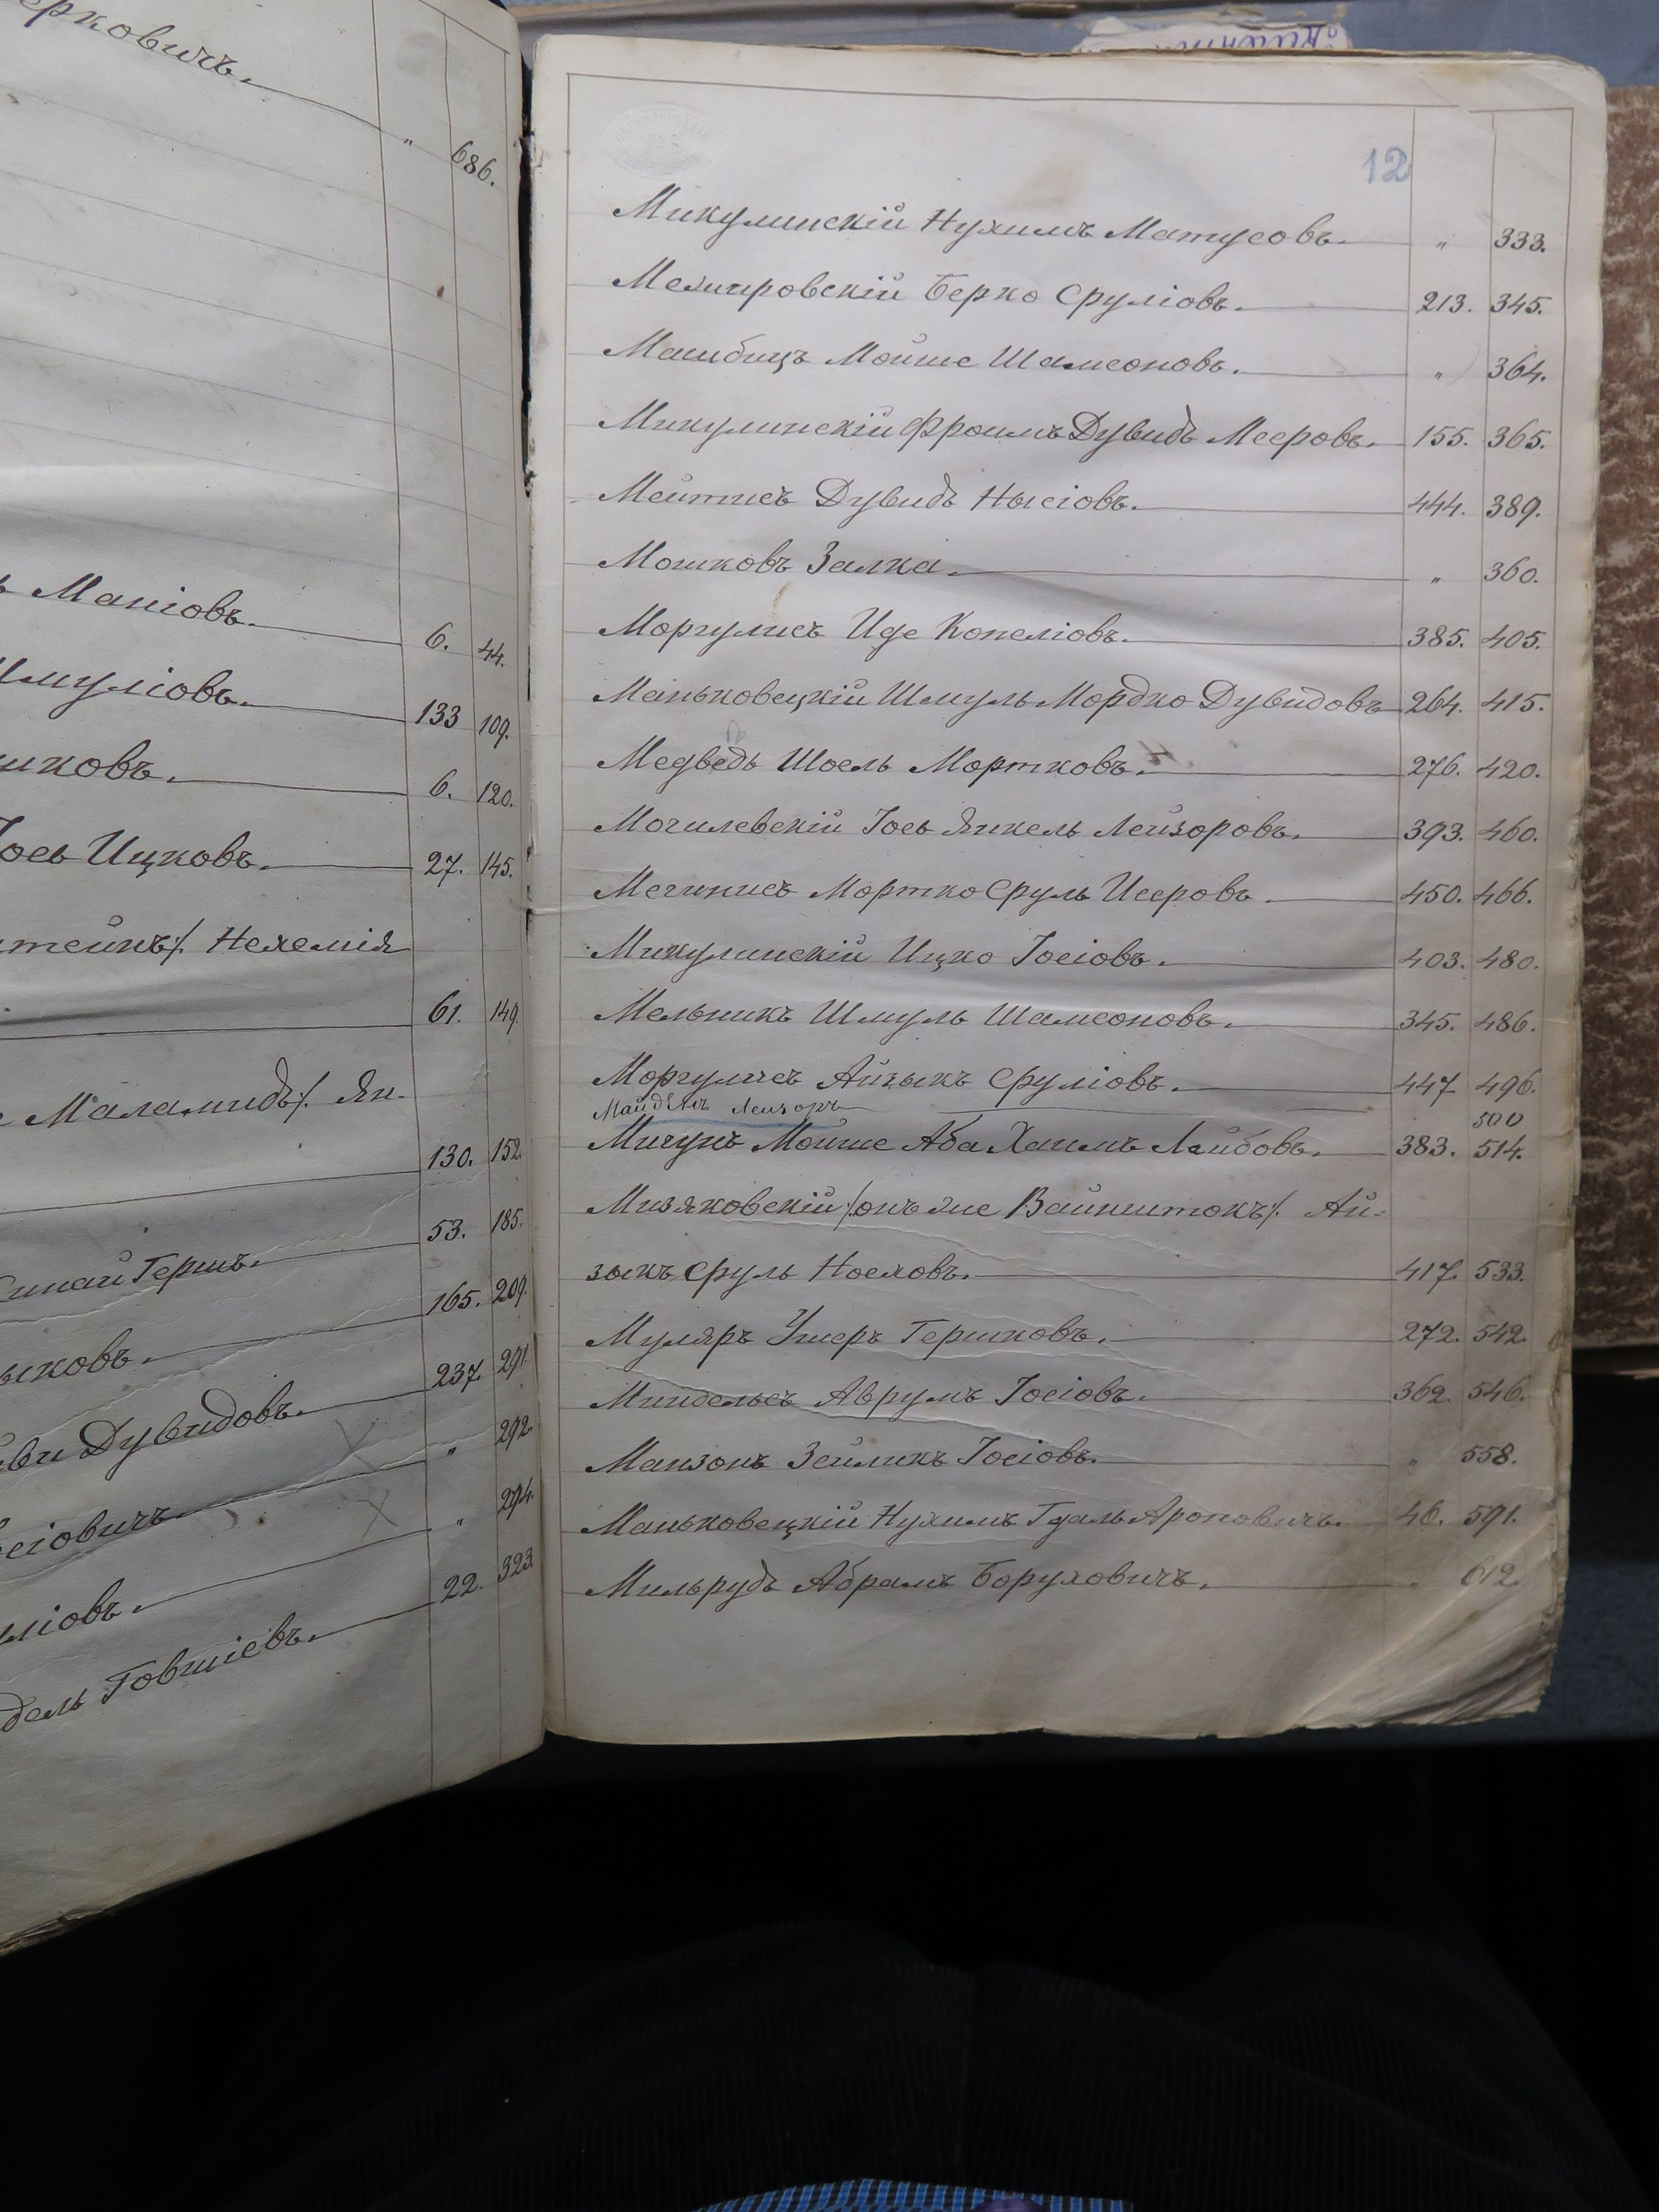 ерковичъ. " 686.
Маніовъ. 6. 44.
Шмуліовъ. 133 109.
шковъ. 6. 120.
Іось Ицковъ. 27. 145.
штейнъ/. Нехемія
61. 149.
Маламидъ/. Ян-
130. 152.
53. 185.
Гершъ. 165. 209.
ыковъ. 237. 291.
Дувидовъ. " 292.
сіовичъ. " 294.
ліовъ. 22. 323.
дель Говшіевъ.
12
Микулинскій Нухимъ Матусовъ. " 333.
Межировскій Берко Сруліовъ. 213. 345.
Машбицъ Мойше Шамсоновъ. " 364.
Микулинскій Фроимъ Дувидъ Мееровъ. 155. 365.
Мейтисъ Дувидъ Нысіовъ. 444. 389.
Мошковъ Залка. " 360.
Моргулисъ Иде Копеліовъ. 385. 405.
Маньковецкій Шмуль Мордко Дувидовъ 264. 415.
Медведь Шоель Мортковъ. 276. 420.
Могилевскій Іось Янкель Лейзоровъ. 393. 460.
Мортко Сруль Исеровъ. 450. 466.
Микулинскій Ицко Іосіовъ. 403. 480.
Мельникъ Шмуль Шамсоновъ. 345. 486.
Моргулисъ Айзыкъ Сруліовъ. 447 496.
Лейзоръ 500
Мичунъ Мойше Аба Хаимъ Лейбовъ. 383. 514.
Мизяковскій /онъ же Вайнштокъ/. Ай-
зыкъ Сруль Ноеховъ. 417. 533.
Муляръ Ушеръ Гершковъ. 272. 542.
Миндельсъ Аврумъ Іосіовъ. 362. 546.
Манзонъ Зейликъ Іосіовъ. " 558.
Маньковецкій Нухимъ Гдаль Ароновичъ. 46. 591.
Мильрудъ Абрамъ Боруховичъ. " 612